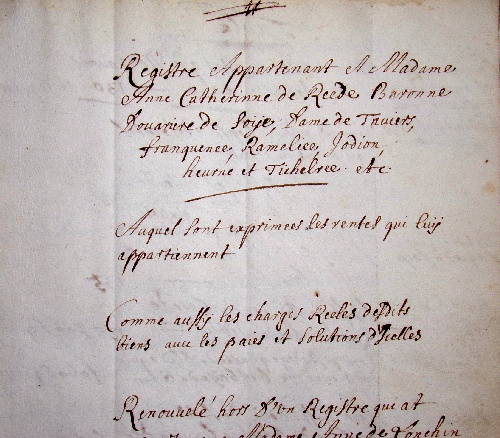 Registre Appartenant A Madame
Anne Catherinne de Reede Baronne
Douariere de Soije, Dame de Thuiers,
franquenee Rameliee, Jodion,
heurne et Tichelree etc
Auquel sont exprimees les rentes qui luij
appartiennent
Comme aussij les charges Reeles desdits
biens avec les paies et Solutions d'Icelles
Renouvelé hors d'un Registre qui at
Madame Anne de